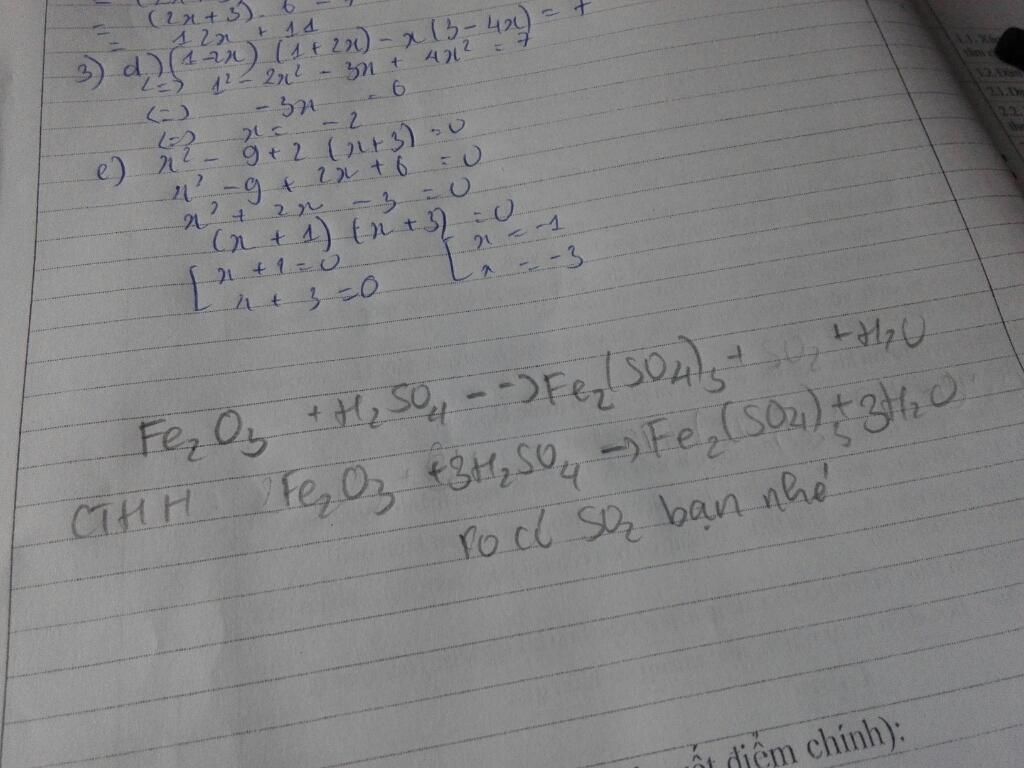 = (2x+3). 6
= 12x + 11
3) d) (1-2x) (1+2x) - x (3-4x) = 7
<=> 1² - 2x² - 3x + 4x² = 7
<=> - 3x = 6
<=> x = - 2
e) x² - 9 + 2 (x+3) = 0
x² - 9 + 2x + 6 = 0
x² + 2x - 3 = 0
(x + 1) (x + 3) = 0
[ x + 1 = 0 [ x = -1
x + 3 = 0 x = -3
Fe₂O₃ + H₂SO₄ --> Fe₂(SO₄)₃ + SO₂ + H₂O
CTHH Fe₂O₃ + 3H₂SO₄ -> Fe₂(SO₄)₃ + 3H₂O
SO₂ bạn nhé
điểm chính):